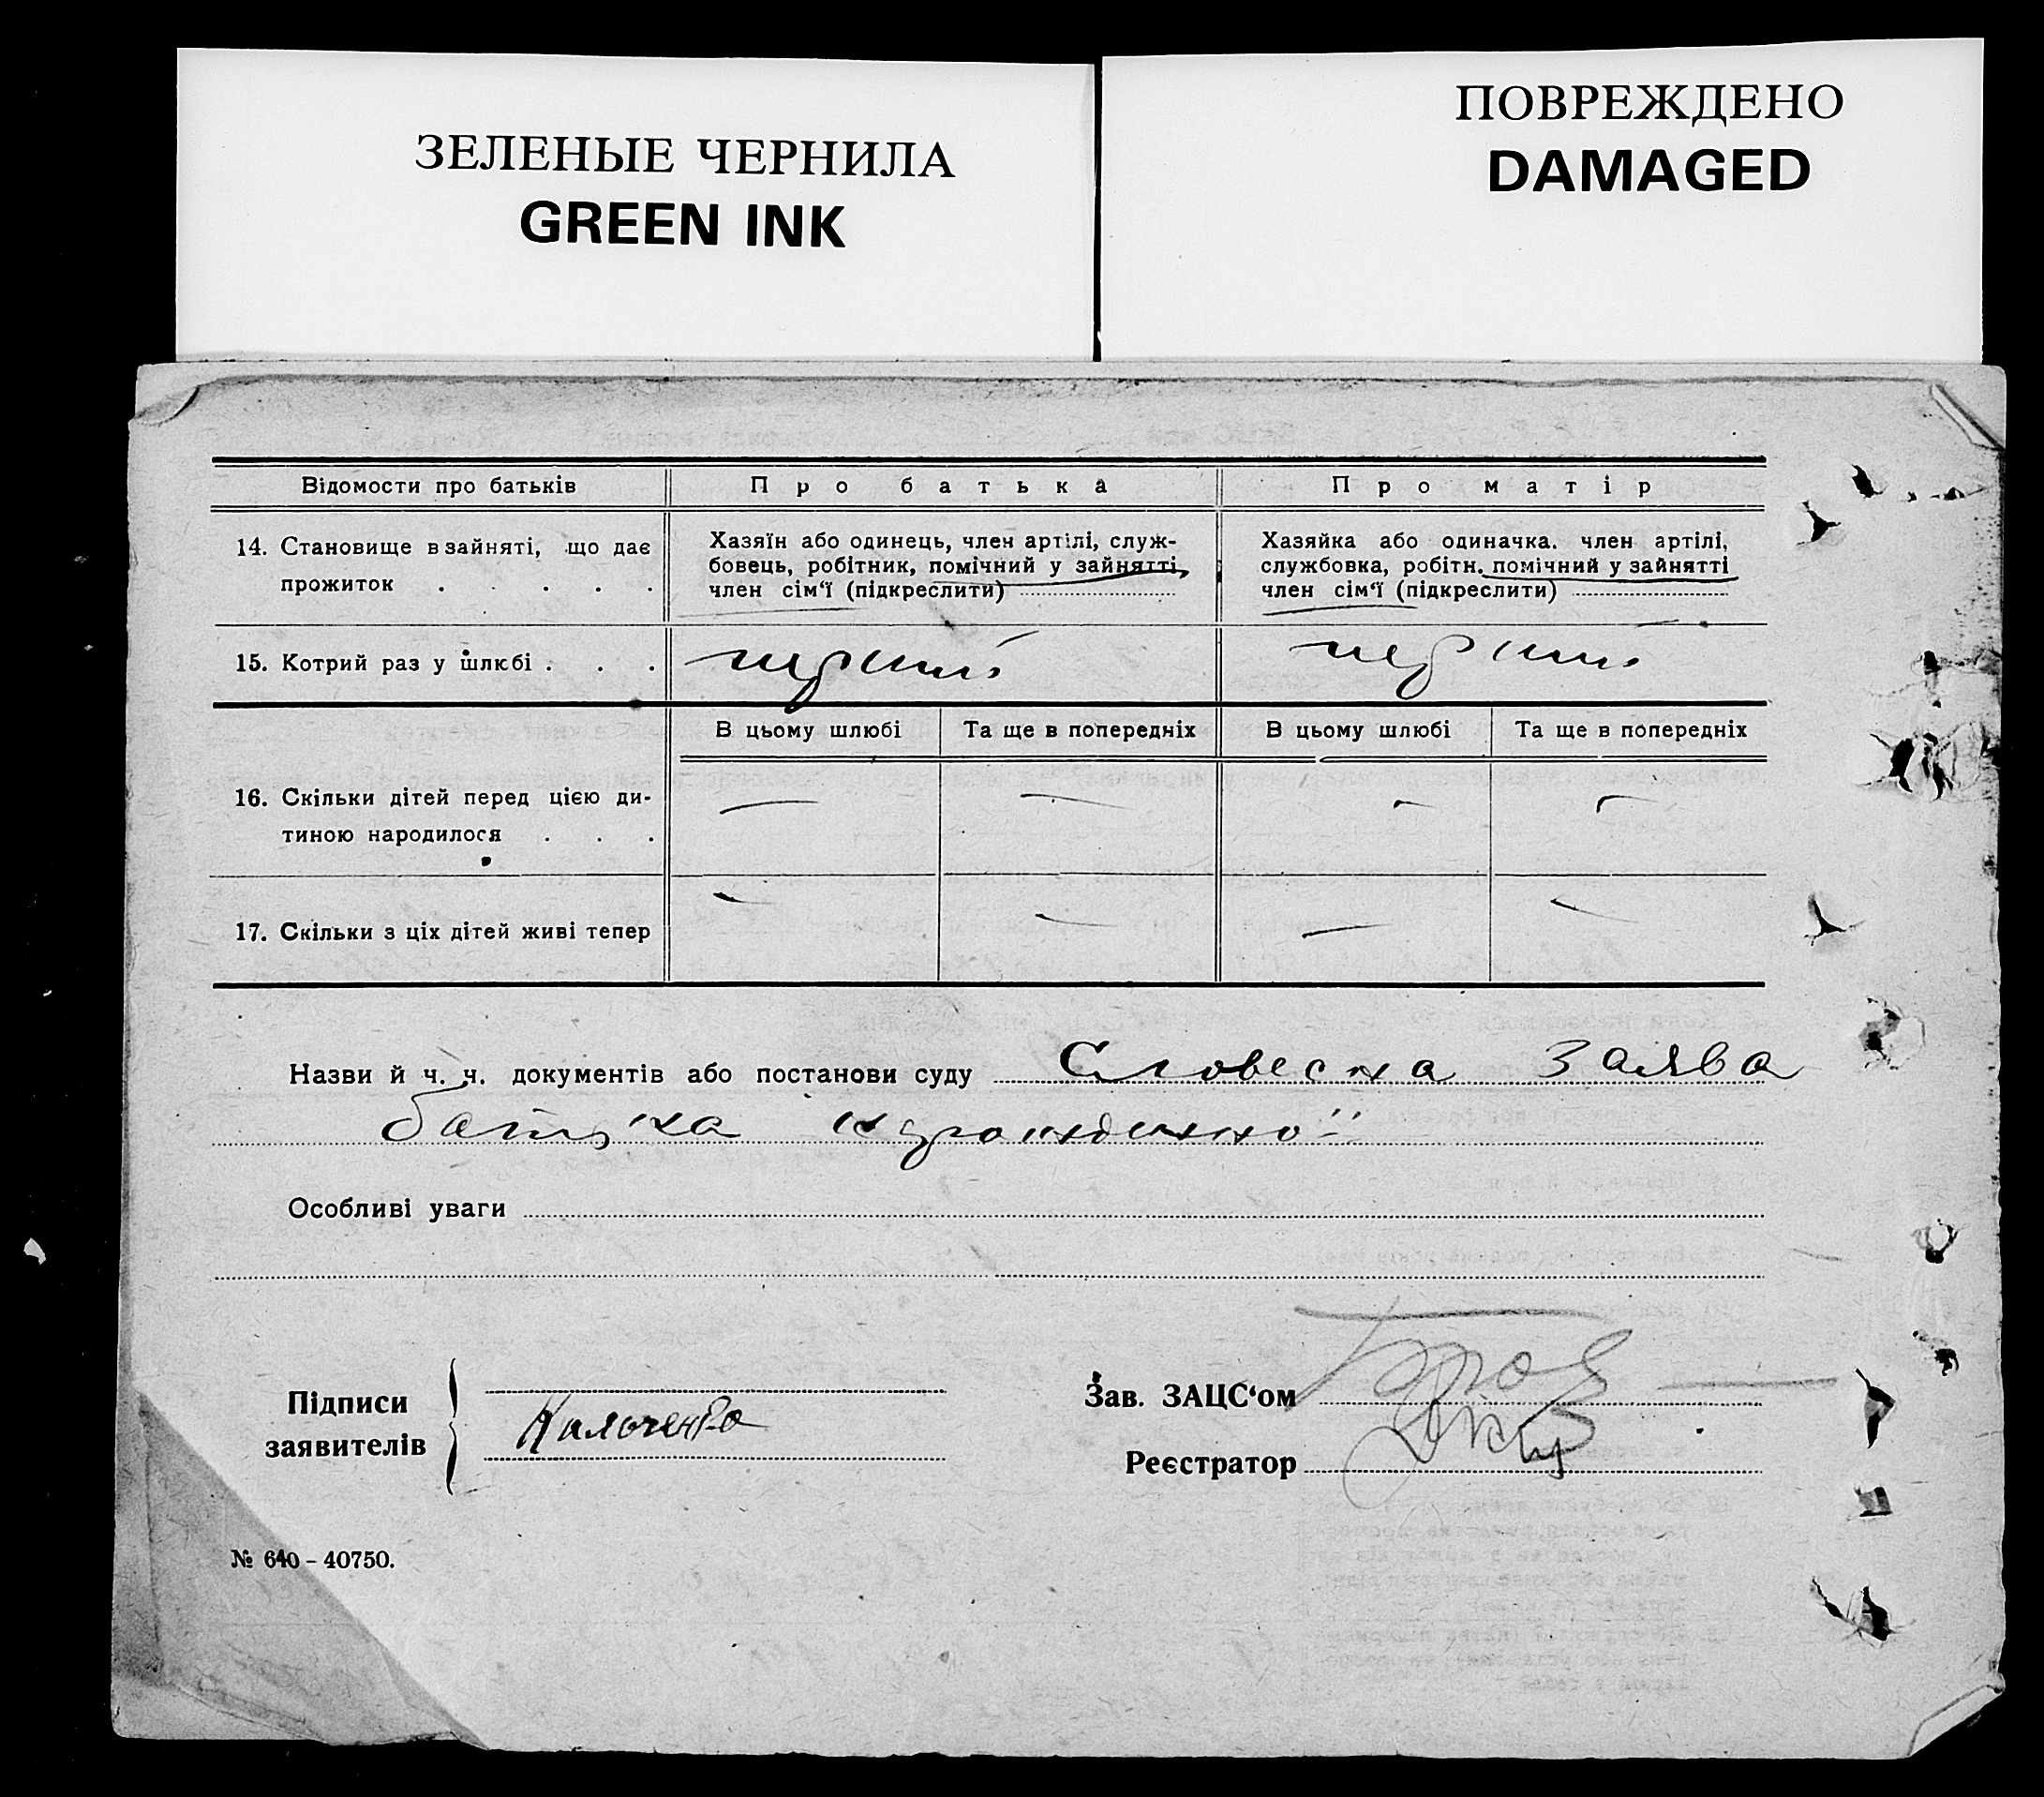 ЗЕЛЕНЫЕ ЧЕРНИЛА
GREEN INK
ПОВРЕЖДЕНО
DAMAGED
Відомости про батьків
Про батька
Про матір
14. Становище в зайняті, що дає
прожиток . . . .
Хазяїн або одинець, член артілі, служ-
бовець, робітник, помічний у зайнятті,
член сім‘ї (підкреслити)
Хазяйка або одиначка. член артілі,
службовка, робітн. помічний у зайнятті
член сім‘ї (підкреслити)
15. Котрий раз у шлюбі . . .
перший
перший
В цьому шлюбі
Та ще в попередніх
В цьому шлюбі
Та ще в попередніх
16. Скільки дітей перед цією ди-
тиною народилося . . .
— — — —
17. Скільки з ціх дітей живі тепер
— — — —
Назви й ч. ч. документів або постанови суду Словесна заява
батька
Особливі уваги
Підписи
заявителів
Зав. ЗАЦС‘ом
Реєстратор
№ 640 – 40750.